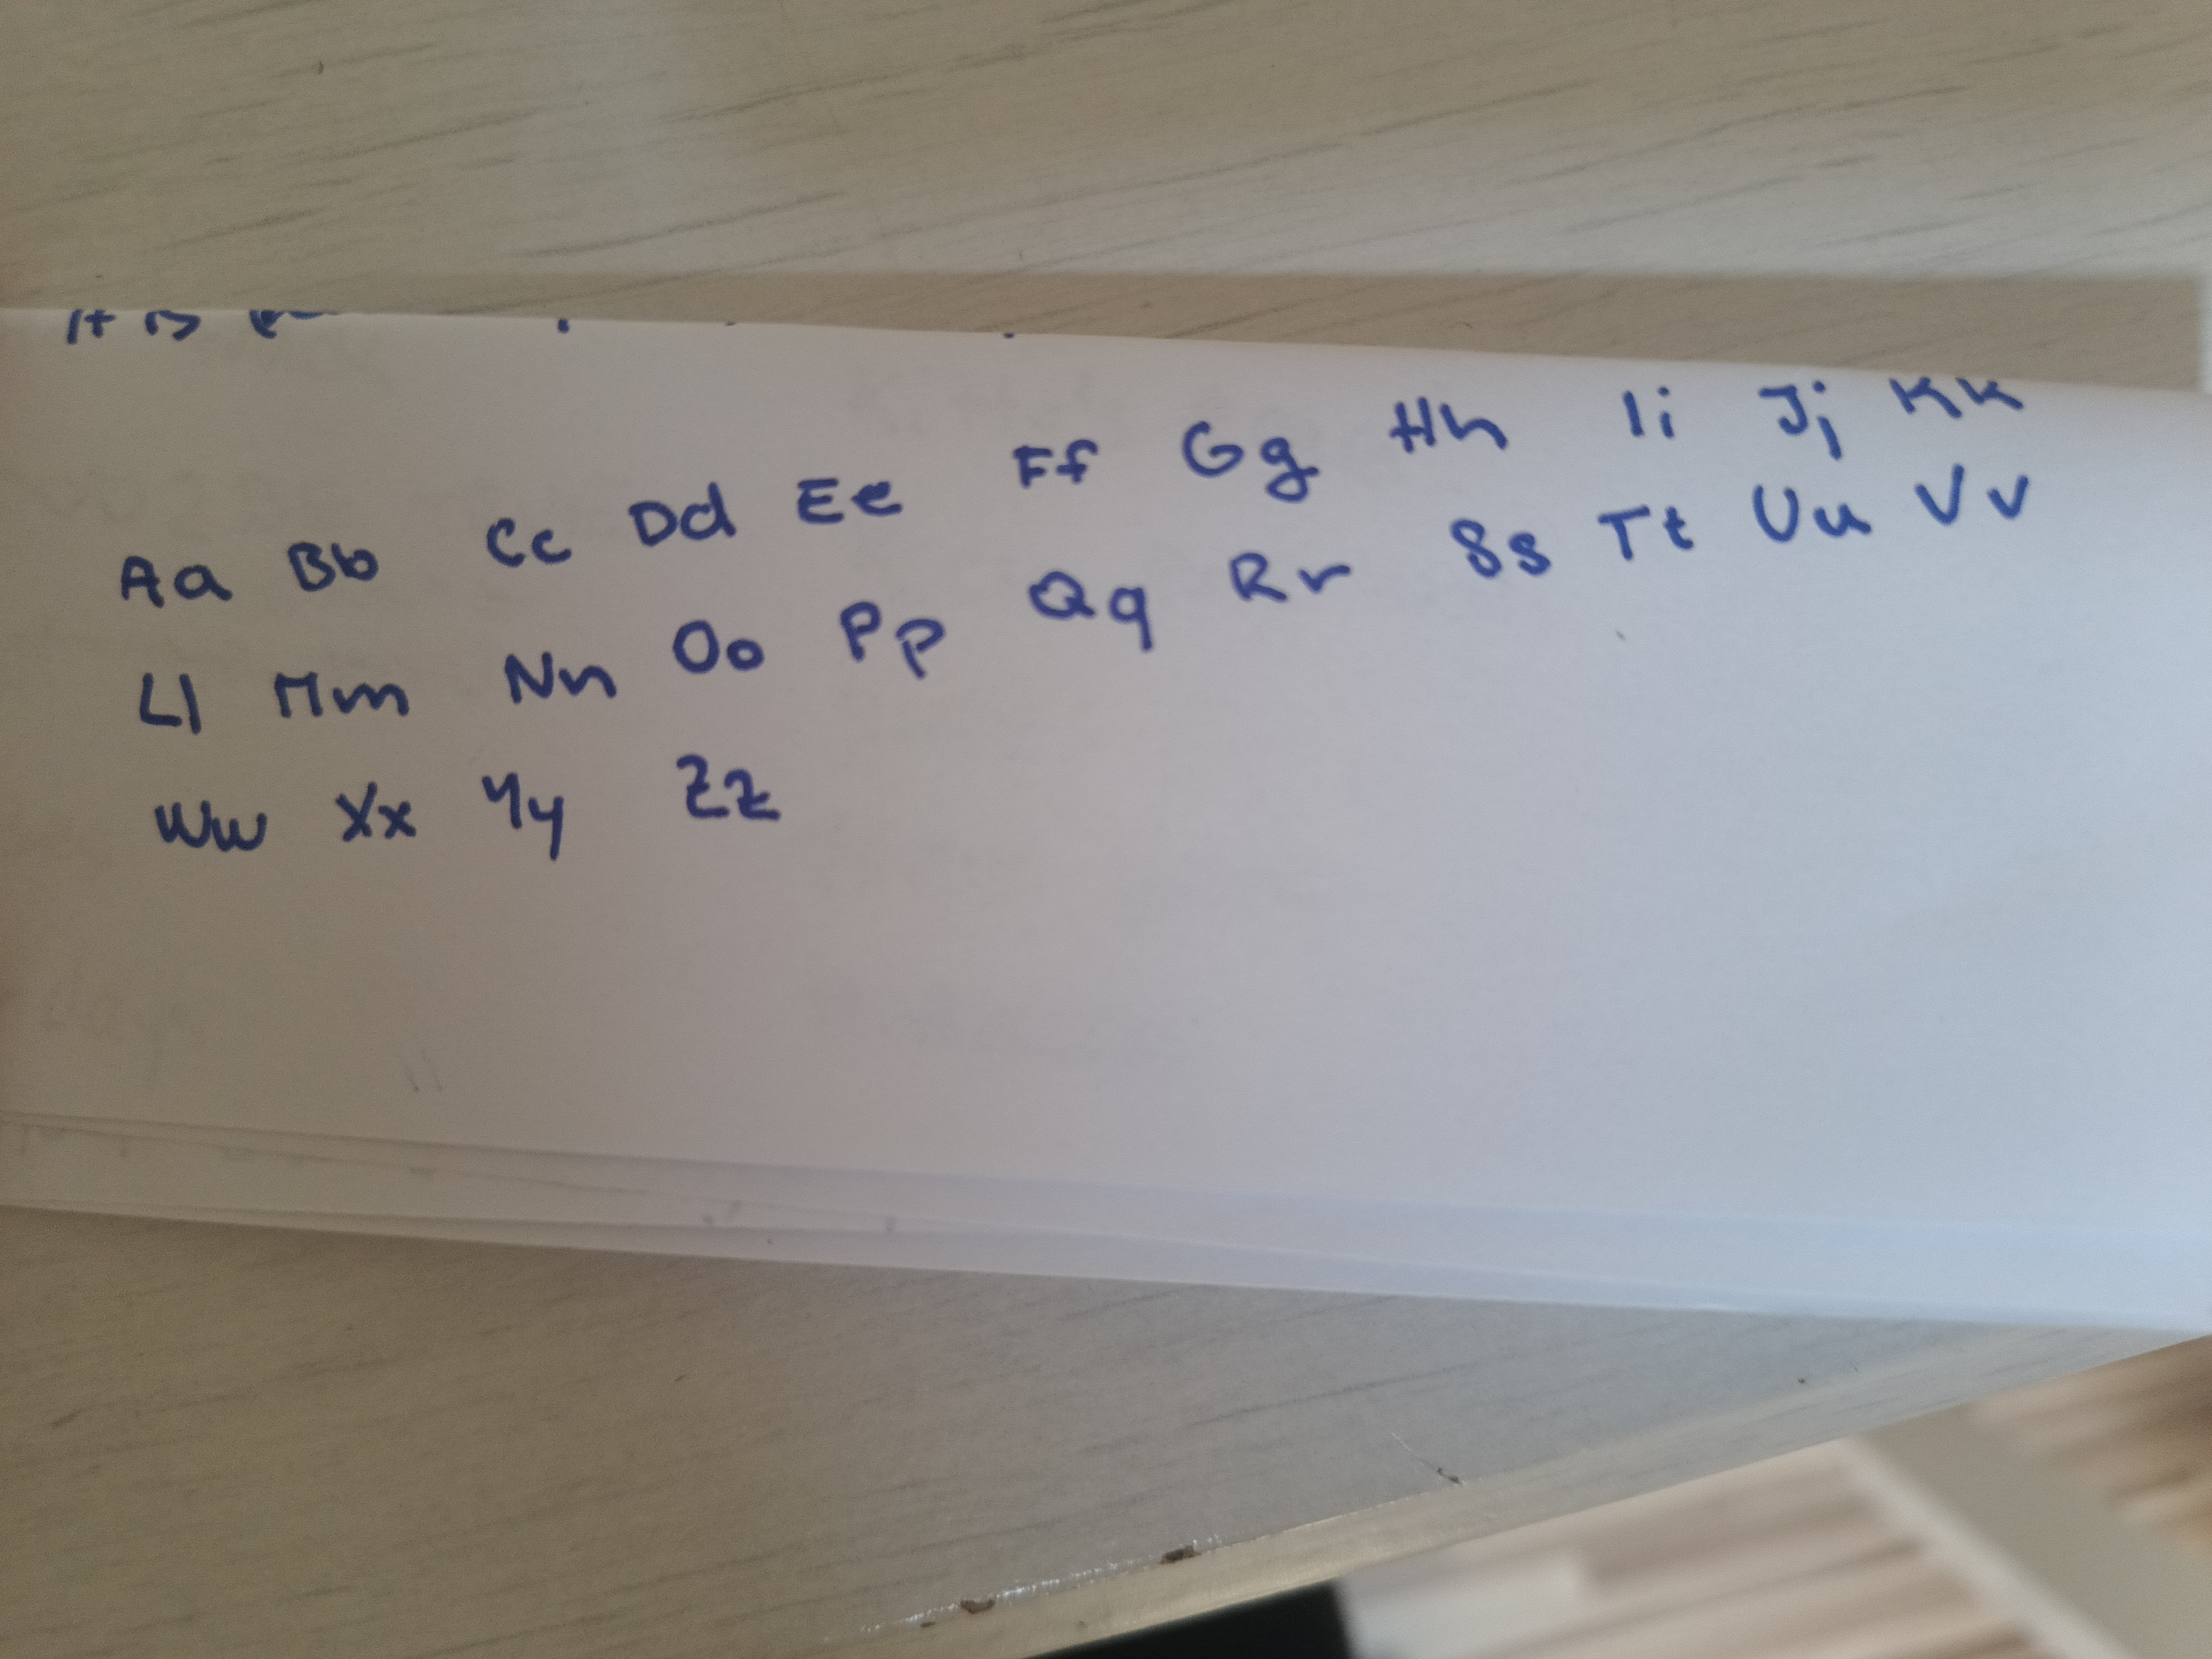 It is
Aa Bb Cc Dd Ee Ff Gg Hh Ii Jj Kk
Ll Mm Nn Oo Pp Qq Rr Ss Tt Uu Vv
Ww Xx Yy Zz